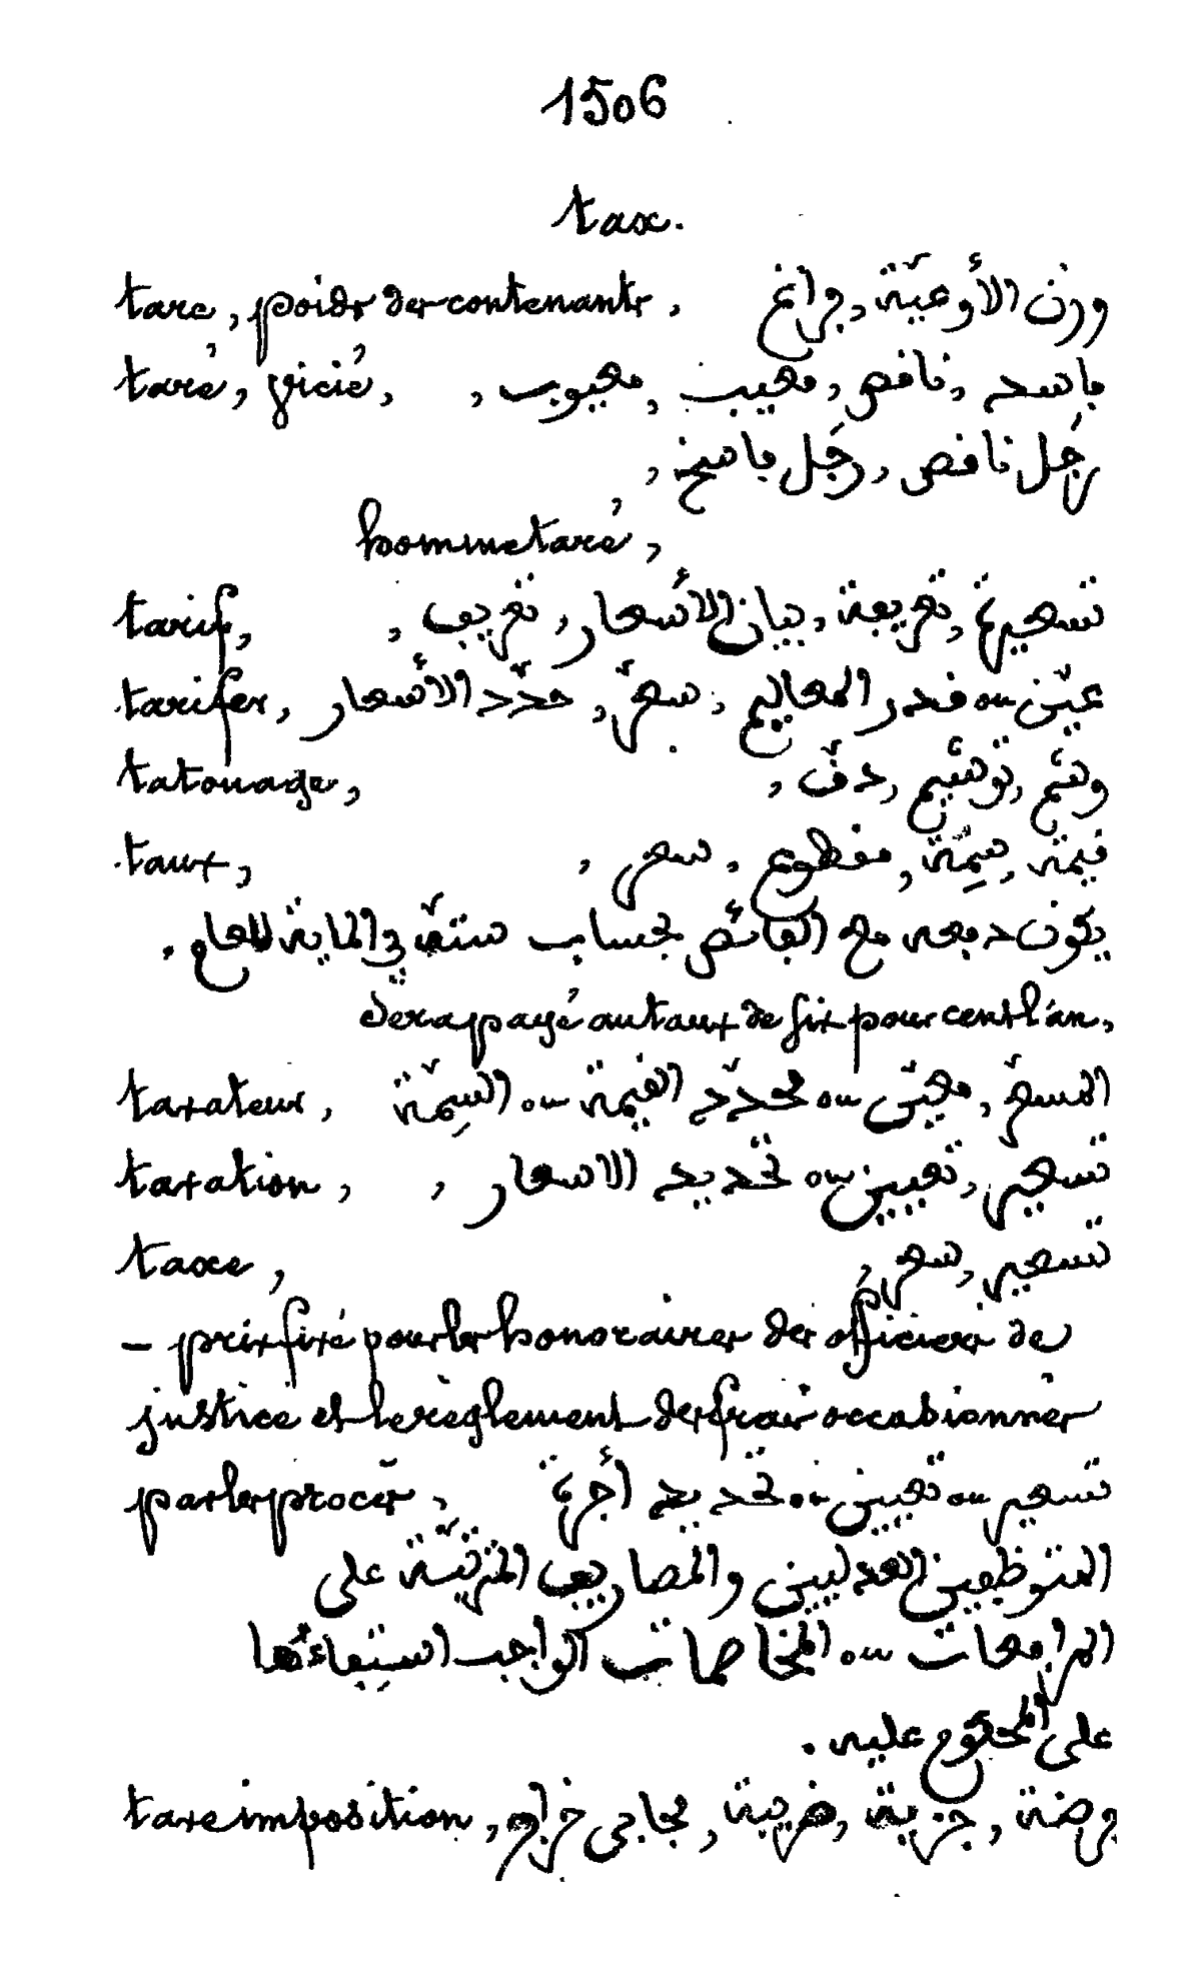 1506
tax.
tare, poids des contenants, وزن الأوعيّة, فرانغ
taré, vicié, فاسد, ناقص, معيب, معيوب,
رجُل ناقص, رجُل فاسخ,
homme taré,
tarif, تسعيرة, تعريفة, بيان الأسعار, تعريف,
tarifer, عيّن ou قدر المعاليم, سعّر, حدّد الأسعار
tatouage, وشم, توشيم, دقّ,
taux, قيمة, سِيمَة, مقطوع, سعر,
يكون دفعه مع الفائض بحساب ستّة في الماية للعام.
sera payé au taux de six pour cent l'an,
taxateur, المسعّر, معيّن ou محدّد القيمة ou السِيمَة
taxation, تسعير, تعيين ou تحديد الاسعار,
taxe, تسعير, سعر,
– prix fixé pour les honoraires des officiers de
justice et le règlement des frais occasionnés
par les procès, تسعير ou تعيين ou تحديد أجرة
المتوظفين العدليين والمصاريف المترتّبة على
المرافعات ou المخاصمات الواجب استيفاءُها
على المحكوم عليه.
taxe imposition, فرضة, جزية, ضريبة, مجابي خراج